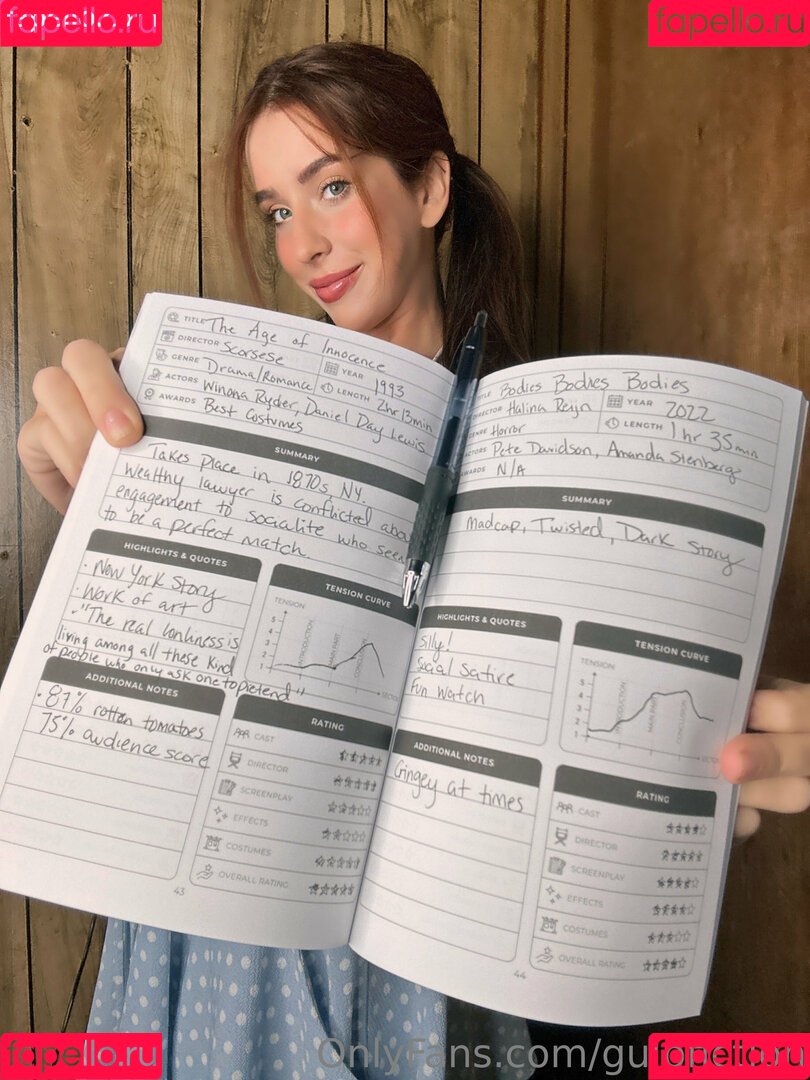 fapello.ru
fapello.ru
TITLE The Age of Innocence
DIRECTOR Scorsese
YEAR 1993
GENRE Drama/Romance
LENGTH 2hr 13min
ACTORS Winona Ryder, Daniel Day Lewis
AWARDS Best Costumes
SUMMARY
Takes place in 1870s, NY.
Wealthy lawyer is conflicted abou
engagement to socialite who seem
to be a perfect match.
HIGHLIGHTS & QUOTES
· New York Story
· Work of art
· "The real lonliness is
living among all these kind
of people who only ask one to pretend"
TENSION CURVE
TENSION
5
4
3
2
1
INTRODUCTION
MAIN PART
ADDITIONAL NOTES
· 87% rotten tomatoes
75% audience score
RATING
CAST
DIRECTOR
SCREENPLAY
EFFECTS
COSTUMES
OVERALL RATING
43
TITLE Bodies Bodies Bodies
DIRECTOR Halina Reijn
YEAR 2022
GENRE Horror
LENGTH 1 hr 35 min
ACTORS Pete Davidson, Amanda Stenberg
AWARDS N/A
SUMMARY
Madcap, Twisted, Dark Story
HIGHLIGHTS & QUOTES
Silly!
Social Satire
Fun Watch
TENSION CURVE
TENSION
5
4
3
2
1
INTRODUCTION
MAIN PART
CONCLUSION
ADDITIONAL NOTES
Cringey at times
RATING
CAST
DIRECTOR
SCREENPLAY
EFFECTS
COSTUMES
OVERALL RATING
44
fapello.ru
OnlyFans.com/gu
fapello.ru